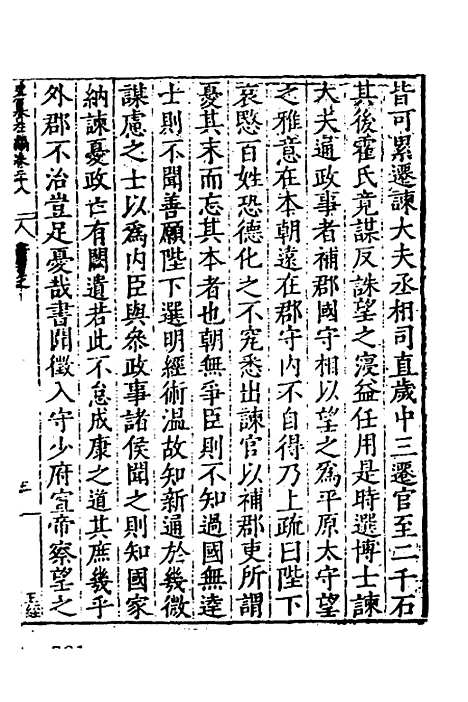 皆可累遷諫大夫丞相司直歲中三遷官至二千石
其後霍氏竟謀反誅望之寖益任用是時選博士諫
大夫通政事者補郡國守相以望之爲平原太守望
之雅意在本朝遠在郡守内不自得乃上疏曰陛下
哀愍百姓恐德化之不究悉出諫官以補郡吏所謂
憂其末而忘其本者也朝無爭臣則不知過國無達
士則不聞善願陛下選明經術温故知新通於幾微
謀慮之士以爲内臣與叅政事諸侯聞之則知國家
納諫憂政亡有闕遺若此不怠成康之道其庶幾乎
外郡不治豈足憂哉書聞徵入守少府宣帝察望之
三